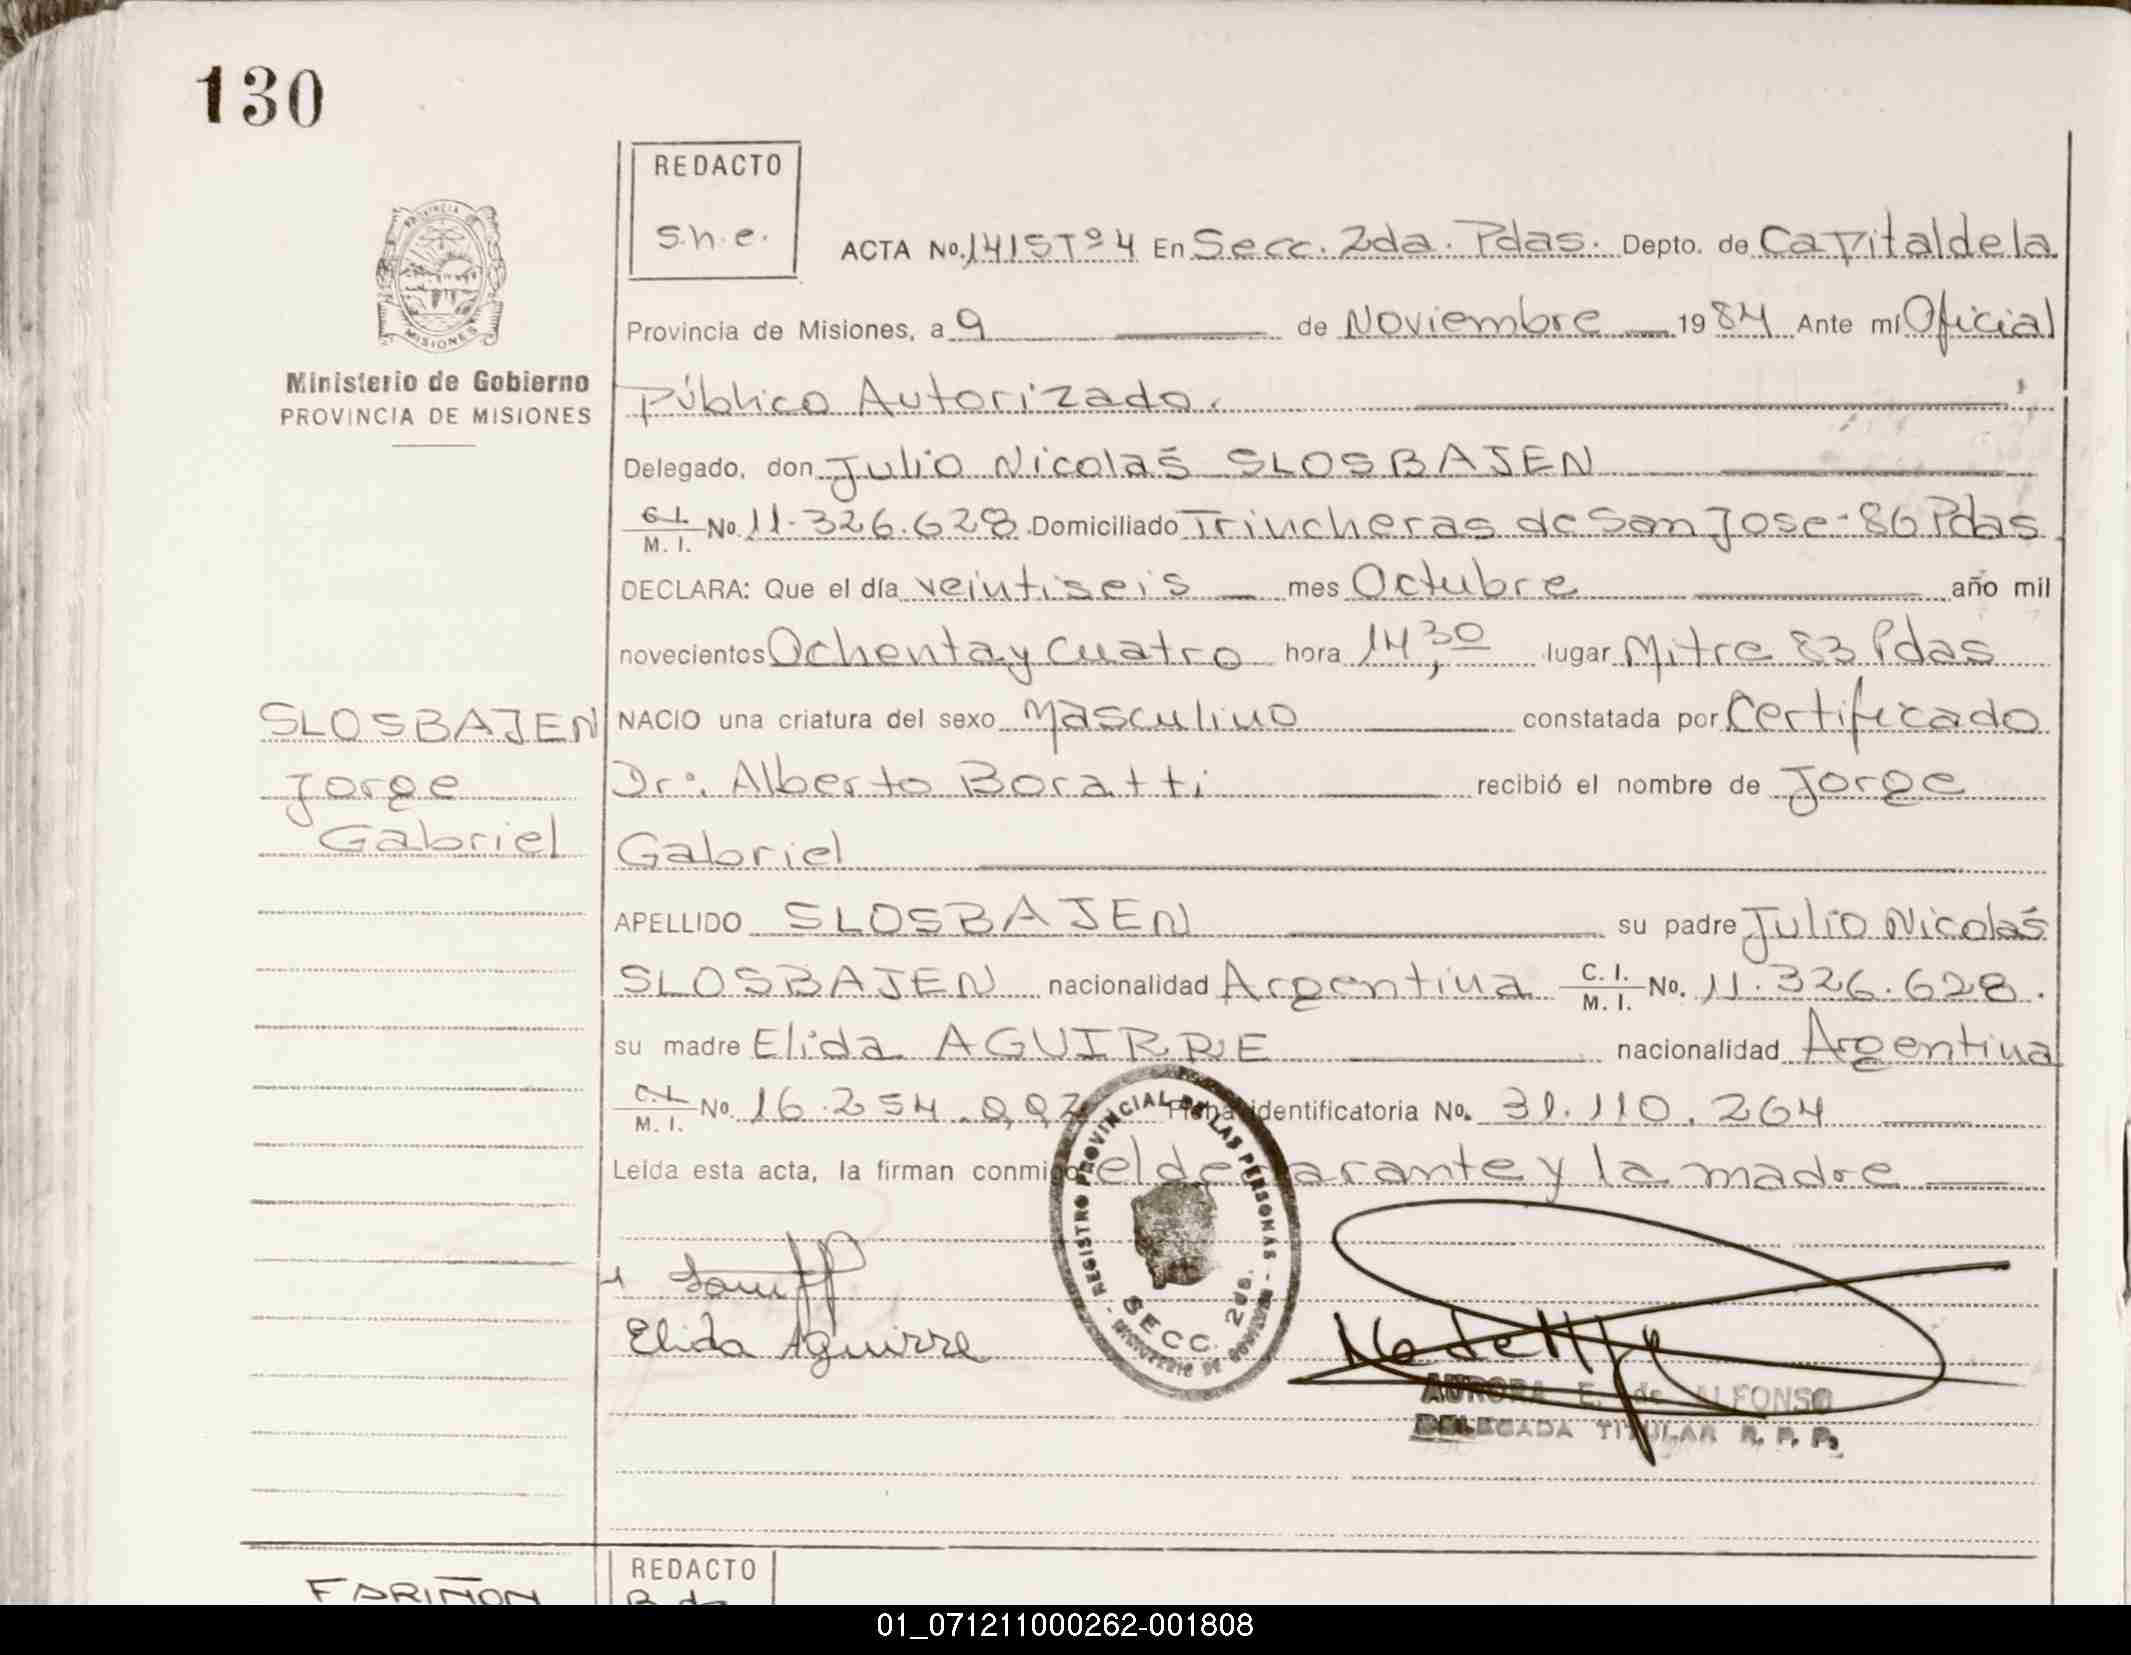 130
REDACTO
S.h.e.
ACTA No. 1415Tº4 En Secc. 2da. Pdas. Depto. de Capital de la
PROVINCIA DE MISIONES
Provincia de Misiones, a 9 de Noviembre 1984 Ante mí Oficial
Ministerio de Gobierno
PROVINCIA DE MISIONES
Público Autorizado.
Delegado, don Julio Nicolás SLOSBAJEN
C.I. M. I. No. 11.326.628 Domiciliado Trincheras de San Jose-86 Pdas
DECLARA: Que el día veintiseis mes Octubre año mil
novecientos Ochenta y Cuatro hora 14,30 lugar Mitre 83 Pdas
SLOSBAJEN
Jorge
Gabriel
NACIO una criatura del sexo Masculino constatada por Certificado
Dr. Alberto Boratti recibió el nombre de Jorge
Gabriel
APELLIDO SLOSBAJEN su padre Julio Nicolás
SLOSBAJEN nacionalidad Argentina C. I. M. I. No. 11.326.628.
su madre Elida AGUIRRE nacionalidad Argentina
C.I. M. I. No. 16.254. Ficha identificatoria No. 31.110.264
Leída esta acta, la firman conmigo el declarante y la madre
REGISTRO PROVINCIAL DE LAS PERSONAS - MINISTERIO DE GOBIERNO -
SECC. 2da.
Elida Aguirre
AURORA E. de ALFONSO
DELEGADA TITULAR R. P. P.
FARIÑON
REDACTO
01_071211000262-001808